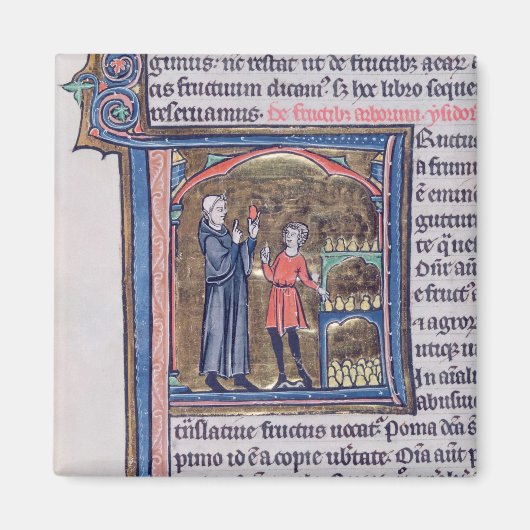 gimus. ne restat ut de fructibꝫ aear
cis fructuum dicam⁹. sꝫ hoc libro seque
reseruamus. De fructibꝫ arborum. ysidor
Ructus
a frum
ē emine
guttur
te q̄ue
Dn̄r au
e fruct⁹
⁊ agror
utiqꝫ u
In aīali
abusiue
tn̄slatiue fructus uocat᷑. Poma dc̄a s̄
pimo id ē a copie ub̄tate. Oīa aūt p